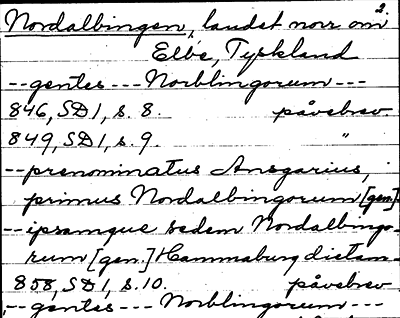 2.
Nordalbingen, landet norr om
Elbe, Tyskland
--gentes --- Norblingorum ---
846, SD1, s. 8. påvebrev.
849, SD1, s. 9. "
--prenominatus Ansgarius,
primus Nordalbingorum [gen].
--ipsamque sedem Nordalbingo-
rum [gen.] Hammaburg dictam-
858, SD1, s. 10. påvebrev
--gentes --- Norblingorum ---